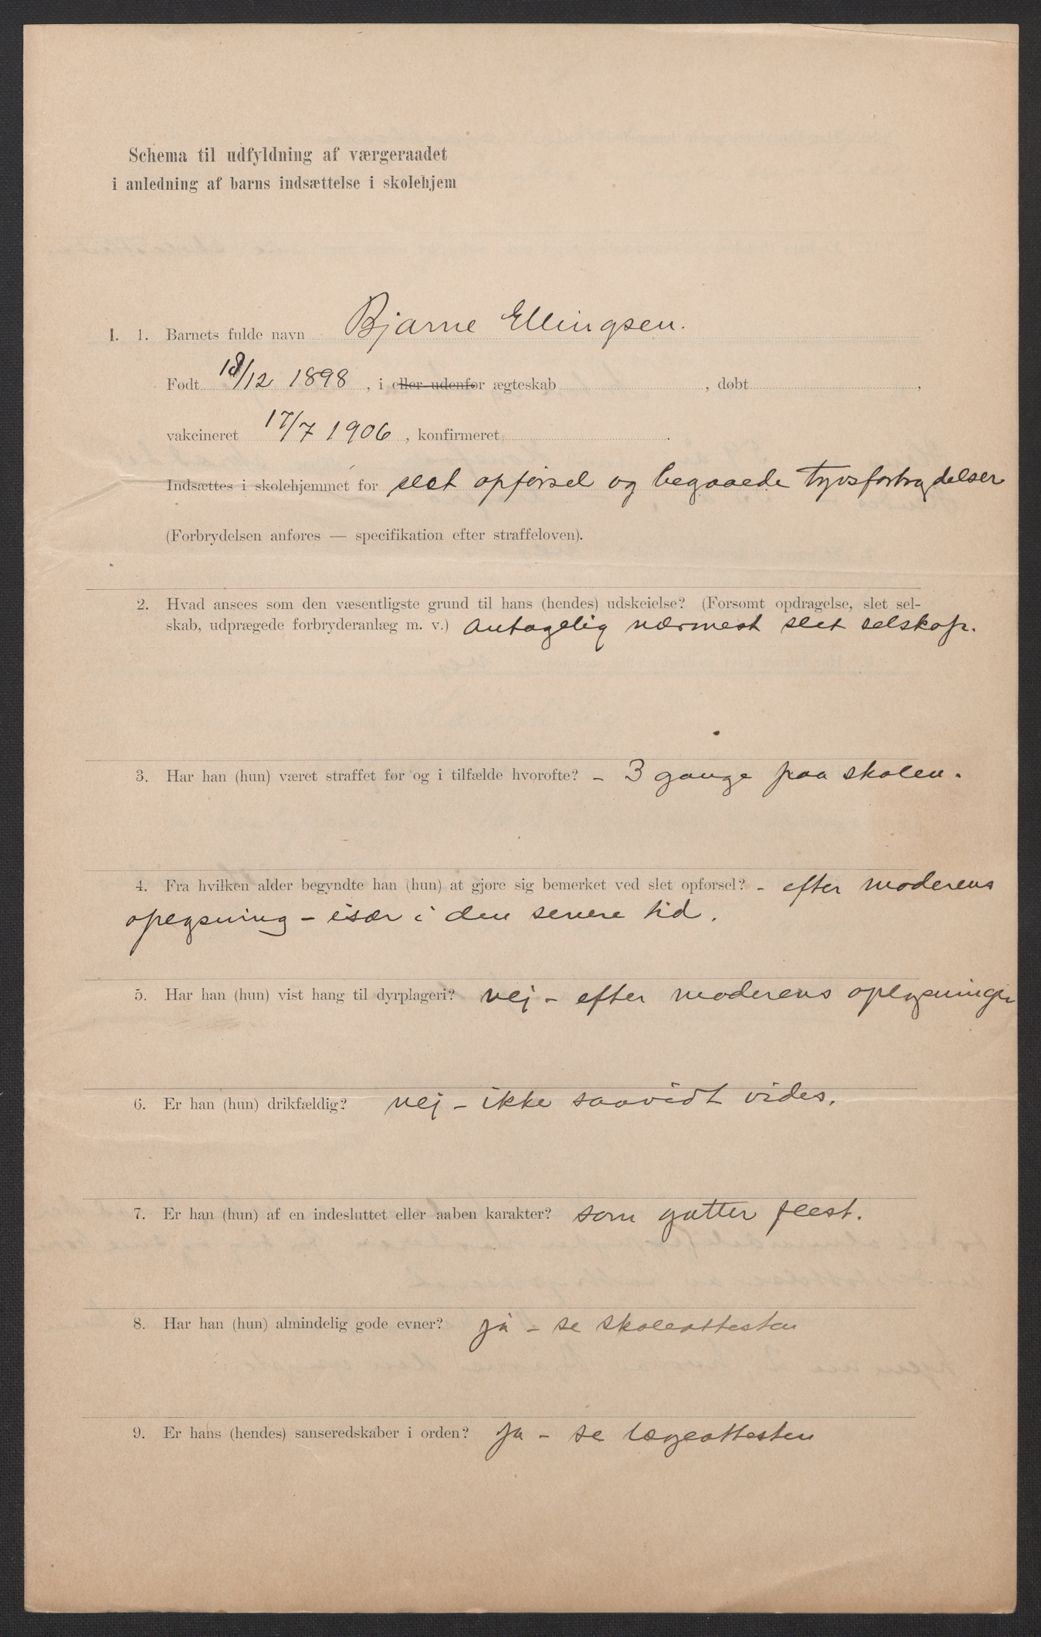 Schema til udfyldning af værgeraadet
i anledning af barns indsættelse i skolehjem
I. 1. Barnets fulde navn Bjarne Ellingsen.
Født 18/12 1898, i eller udenfor ægteskab , døbt ,
vakcineret 17/7 1906, konfirmeret .
Indsættes i skolehjemmet for slet opførsel og begaaede tyvsforbrydelser
(Forbrydelsen anføres — specifikation efter straffeloven).
2. Hvad ansees som den væsentligste grund til hans (hendes) udskeielse? (Forsømt opdragelse, slet sel-
skab, udprægede forbryderanlæg m. v.) Antagelig nærmest slet selskap.
3. Har han (hun) været straffet før og i tilfælde hvorofte? – 3 gange paa skolen.
4. Fra hvilken alder begyndte han (hun) at gjøre sig bemerket ved slet opførsel? – efter moderens
oplysning – især i den senere tid.
5. Har han (hun) vist hang til dyrplageri? nej – efter moderens oplysninger
6. Er han (hun) drikfældig? nej – ikke saavidt vides.
7. Er han (hun) af en indesluttet eller aaben karakter? som gutter flest.
8. Har han (hun) almindelig gode evner? ja – se skoleattesten
9. Er hans (hendes) sanseredskaber i orden? ja – se lægeattesten